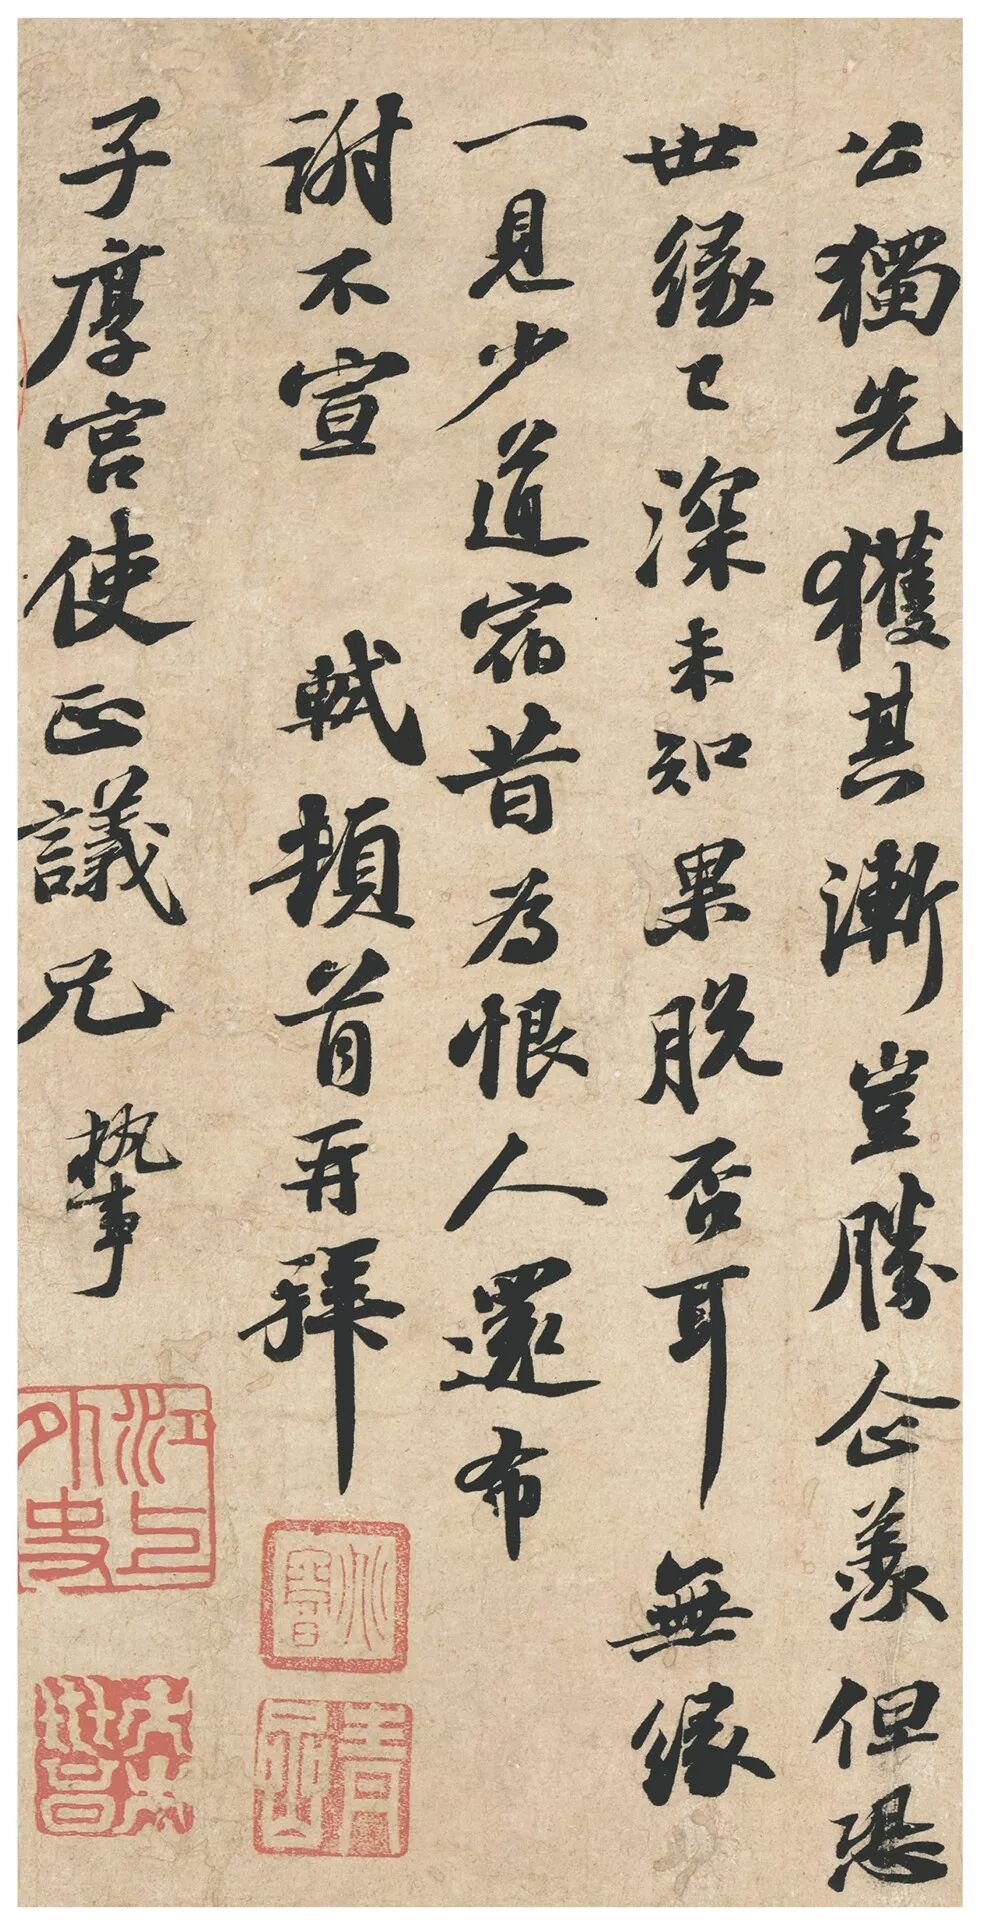 公獨先獲其漸豈勝企羨但恐
世緣已深未知果脫否耳無緣
一見少道宿昔為恨人還布
謝不宣 軾頓首再拜
子厚宮使正議兄 執事